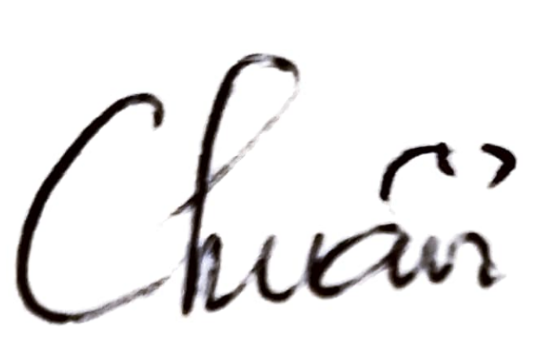 Chuẩn